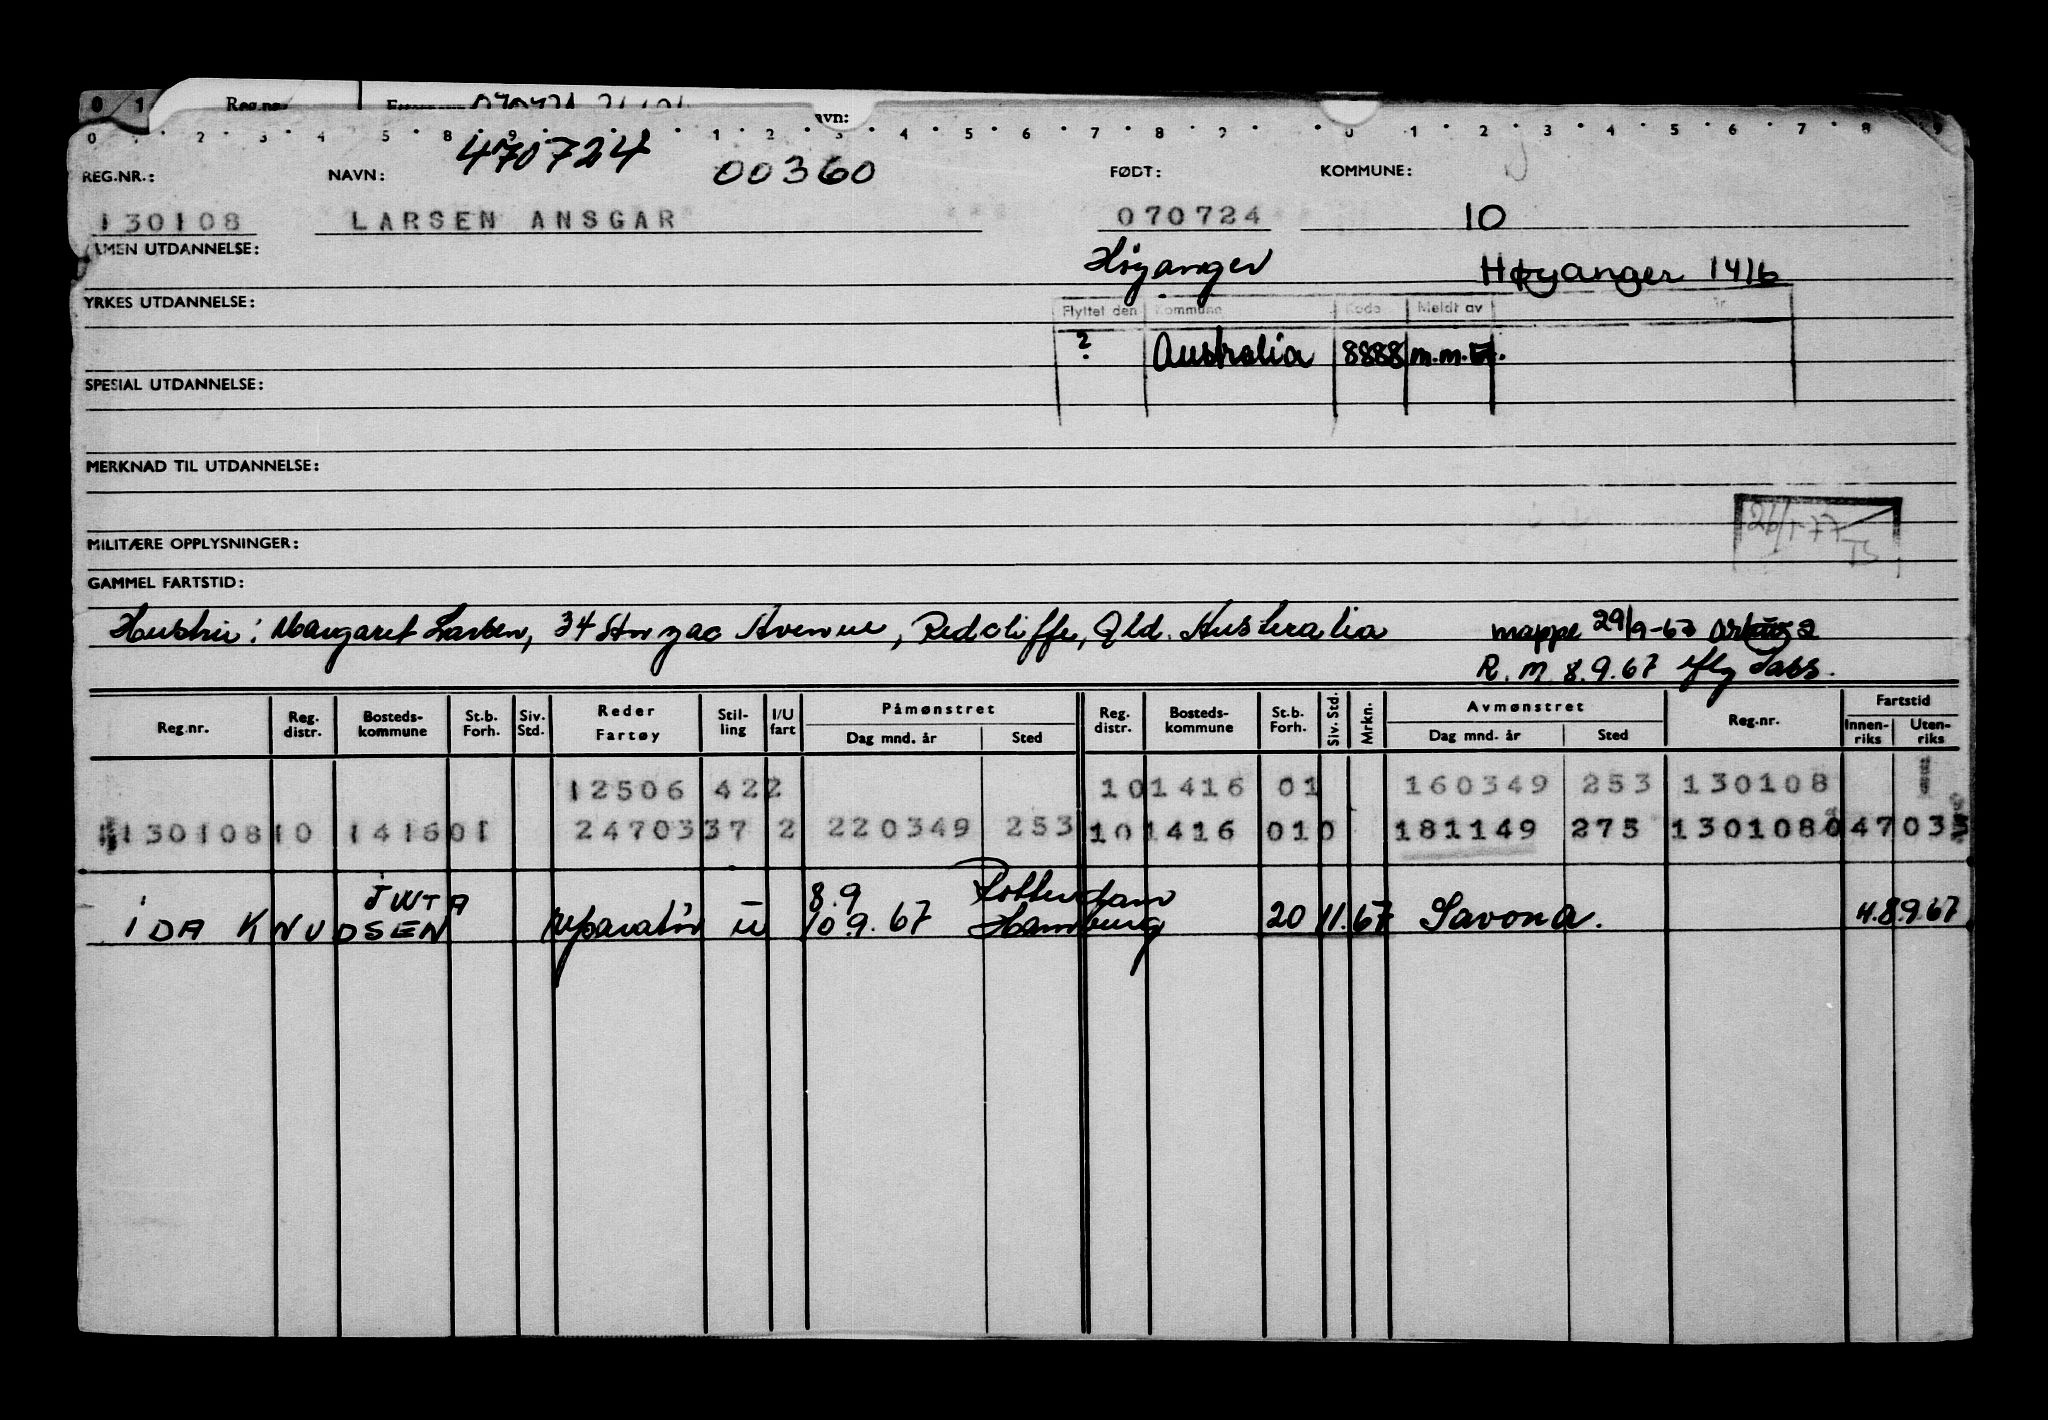 0 1 Reg.nr
avn:
0 2 3 4 5 8 9 1 2 3 4 5 6 7 8 9 0 1 2 3 4 5 6 7 8 9
470724 00360
REG.NR.: NAVN: FØDT: KOMMUNE:
130108 LARSEN ANSGAR 070724 10
AMEN UTDANNELSE: Høyanger Høyanger 1416
YRKES UTDANNELSE:
Flyttet den Kommune Kode Meldt av
? Australia 8888 m.m.
SPESIAL UTDANNELSE:
MERKNAD TIL UTDANNELSE:
26/1-77
TS
MILITÆRE OPPLYSNINGER:
GAMMEL FARTSTID:
Hustru: Margaret Larsen, 34 Anzac Avenue, Redcliffe, Qld. Australia mappe 29/9-67
R.M. 8.9.67
Reg.nr. Reg. distr. Bosteds- kommune St.b. Forh. Siv. Std. Reder Fartøy Stil- ling I/U fart Påmønstret Dag mnd. år Sted Reg. distr. Bosteds- kommune St.b. Forh. Siv. Std. Mrkn. Avmønstret Dag mnd. år Sted Reg.nr. Fartstid Innen- riks Uten- riks
12506 422 101416 01 160349 253 130108
130108 10 1416 01 24703 37 2 220349 253 10 1416 010 181149 275 130108 0 47 03
JWTA 8.9 Rotterdam
IDA KNUDSEN reparatør u 10.9.67 Hamburg 20 11.67 Savona. H.8.9.67